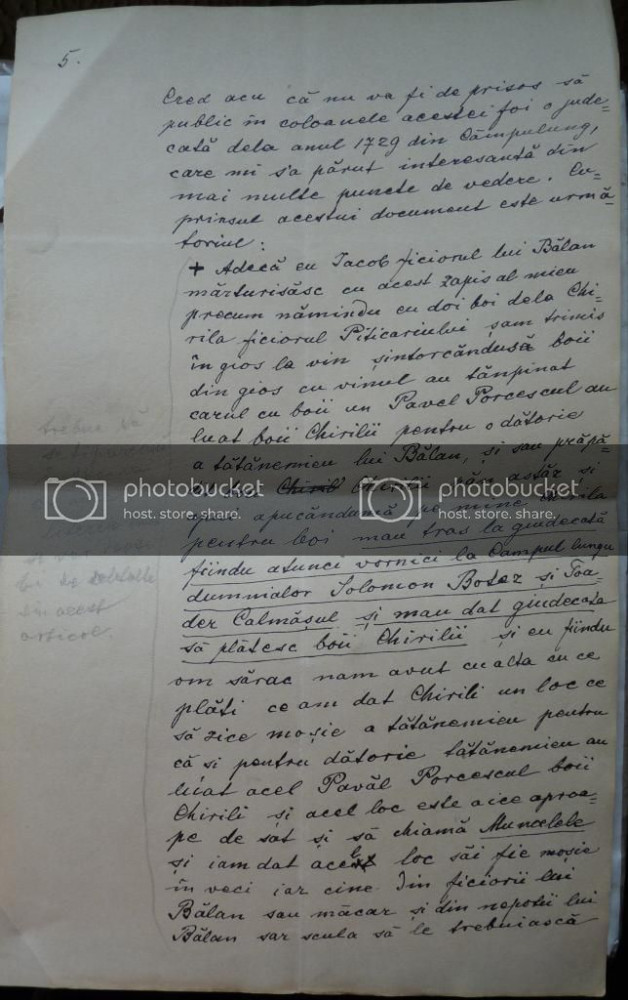 5.
Cred acu că nu va fi de prisos să
public în coloanele acestei foi o jude=
cată dela anul 1729 din Câmpulung,
care mi s'a părut interesantă din
mai multe puncte de vedere. Cu=
prinsul acestui document este urmă=
toriul:
+ Adecă eu Iacob ficiorul lui Bălan
mărturisăsc cu acest zapis al mieu
precum nămindu cu doi boi dela Chi=
rila ficiorul Piticariului șam trimis
în gios la vin șintorcăndusă boii
din gios cu vinul au tănpinat
carul cu boii un Pavel Porcescul au
luat boii Chirilii pentru o dătorie
a tătănemieu lui Bălan, și sau prăpă=
Chirilii păr astăz și
apoi apucăndumă pe mine Chirila
pentru boi mau tras la giudecată
fiindu atunci vornici la Campul lungu
dumnialor Solomon Botez și Toa=
der Calmășul și mau dat giudecata
să plătesc boii Chirilii și eu fiindu
om sărac nam avut cu alta cu ce
plăti ce am dat Chirili un loc ce
să zice moșie a tătănemieu pentru
că si pentru dătorie tătănemieu au
luat acel Pavăl Porcescul boii
Chirili și acel loc este aice aproa=
pe de săt și să chiamă Muncelele
și iam dat acel loc săi fie moșie
în veci iar cine din ficiorii lui
Bălan sau măcar și din nepoții lui
Bălan sar scula să le trebuiască
trebue să
din acest
articol
photobucket
host. store. share.
photobucket
host. store. share.